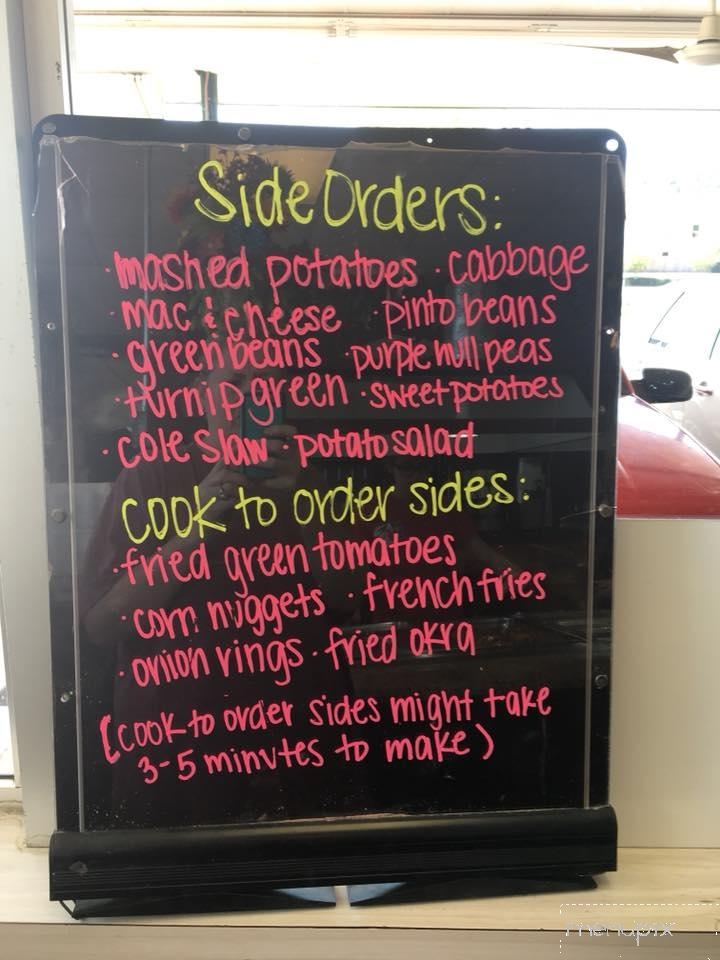 Side Orders:
· mashed potatoes · cabbage
· mac & cheese · pinto beans
· green beans · purple hull peas
· turnip green · sweet potatoes
· cole slaw · potato salad
cook to order sides:
· fried green tomatoes
· corn nuggets · french fries
· onion rings · fried okra
[cook to order sides might take
3-5 minutes to make)
menupix